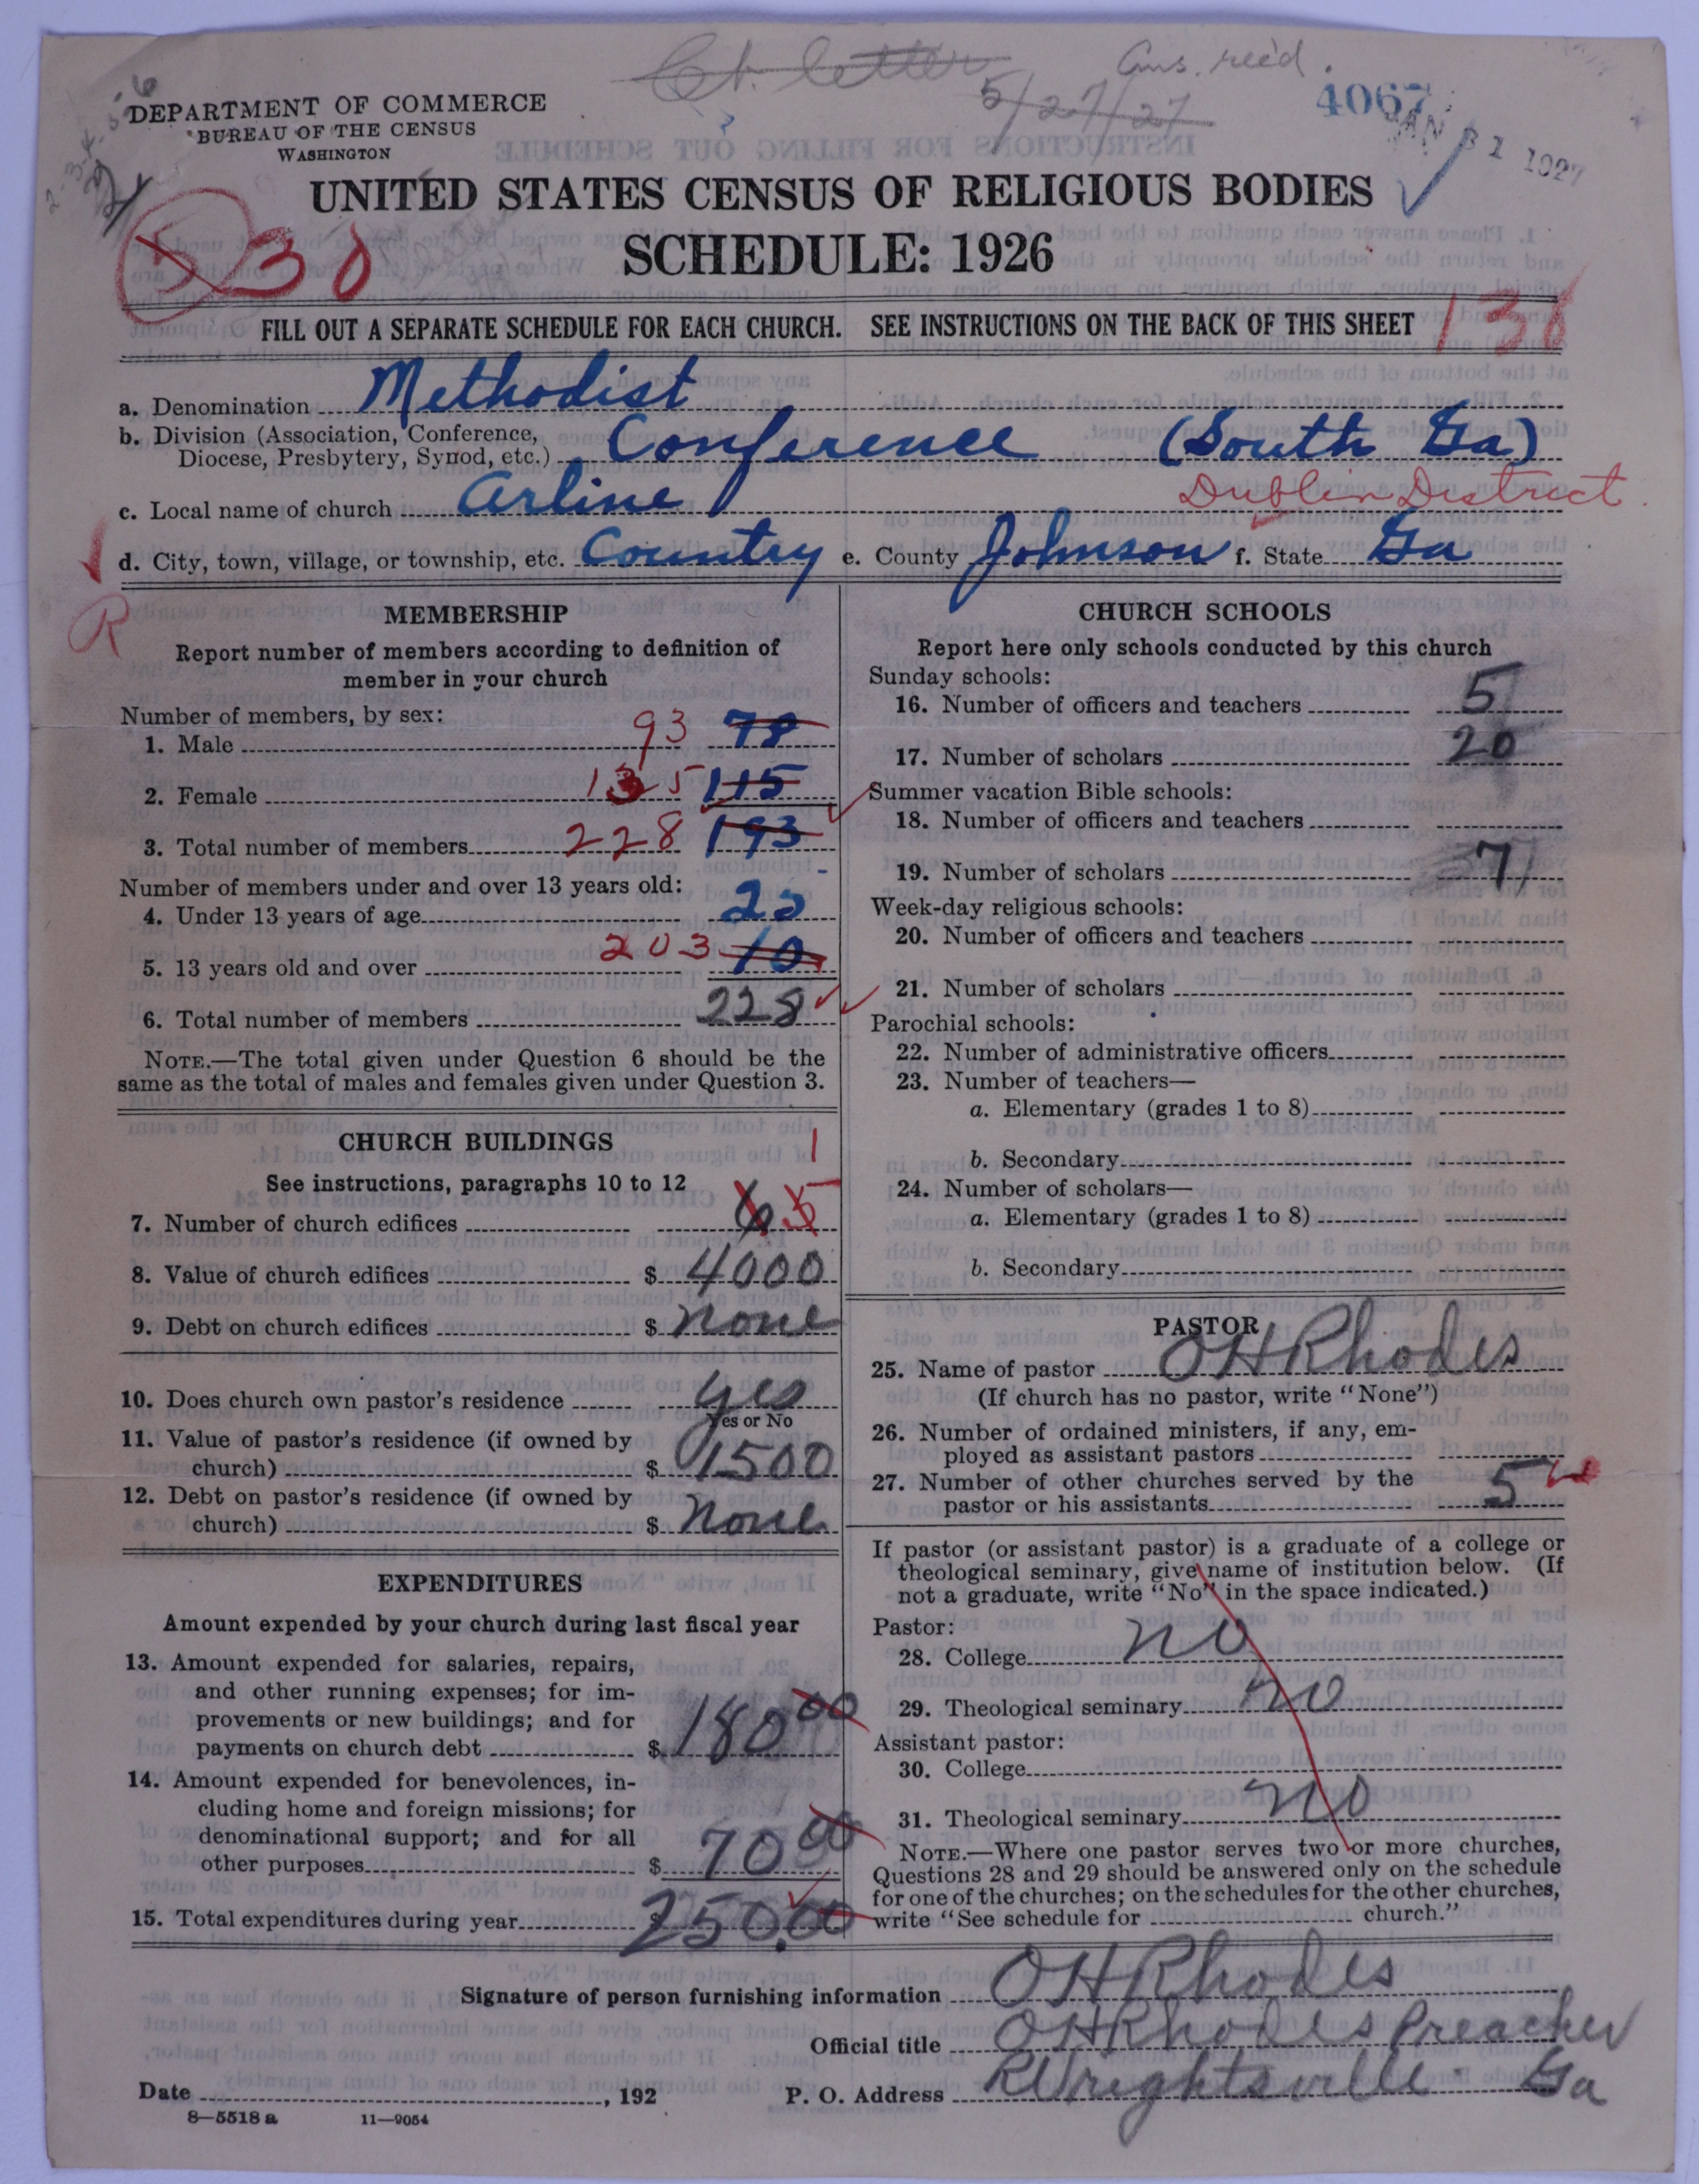 Ct. letter
5/27/27
Ans. rec'd.
4067
JAN 31 1927
DEPARTMENT OF COMMERCE
BUREAU OF THE CENSUS
WASHINGTON
UNITED STATES CENSUS OF RELIGIOUS BODIES
SCHEDULE: 1926
38
FILL OUT A SEPARATE SCHEDULE FOR EACH CHURCH. SEE INSTRUCTIONS ON THE BACK OF THIS SHEET
138
a. Denomination Methodist
b. Division (Association, Conference,
Diocese, Presbytery, Synod, etc.) Conference (South Ga)
Dublin District
c. Local name of church Arline
d. City, town, village, or township, etc. Country e. County Johnson f. State Ga
R
MEMBERSHIP
Report number of members according to definition of
member in your church
Number of members, by sex:
1. Male 93 78
2. Female 135 115
3. Total number of members 228 193
Number of members under and over 13 years old:
4. Under 13 years of age 25
5. 13 years old and over 203 10
6. Total number of members 228
NOTE.—The total given under Question 6 should be the
same as the total of males and females given under Question 3.
CHURCH BUILDINGS
See instructions, paragraphs 10 to 12
1
7. Number of church edifices 6 5
8. Value of church edifices $ 4000
9. Debt on church edifices $ None
10. Does church own pastor's residence yes
Yes or No
11. Value of pastor's residence (if owned by
church) $ 1500
12. Debt on pastor's residence (if owned by
church) $ None
EXPENDITURES
Amount expended by your church during last fiscal year
13. Amount expended for salaries, repairs,
and other running expenses; for im-
provements or new buildings; and for
payments on church debt $ 180 00
14. Amount expended for benevolences, in-
cluding home and foreign missions; for
denominational support; and for all
other purposes $ 70 00
15. Total expenditures during year $ 250.00
CHURCH SCHOOLS
Report here only schools conducted by this church
Sunday schools:
16. Number of officers and teachers 5
17. Number of scholars 20
Summer vacation Bible schools:
18. Number of officers and teachers
19. Number of scholars 7
Week-day religious schools:
20. Number of officers and teachers
21. Number of scholars
Parochial schools:
22. Number of administrative officers
23. Number of teachers—
a. Elementary (grades 1 to 8)
b. Secondary
24. Number of scholars—
a. Elementary (grades 1 to 8)
b. Secondary
PASTOR
25. Name of pastor OH Rhodes
(If church has no pastor, write "None")
26. Number of ordained ministers, if any, em-
ployed as assistant pastors
27. Number of other churches served by the
pastor or his assistants 5
If pastor (or assistant pastor) is a graduate of a college or
theological seminary, give name of institution below. (If
not a graduate, write "No" in the space indicated.)
Pastor:
28. College no
29. Theological seminary no
Assistant pastor:
30. College
31. Theological seminary no
NOTE.—Where one pastor serves two or more churches,
Questions 28 and 29 should be answered only on the schedule
for one of the churches; on the schedules for the other churches,
write "See schedule for church."
Signature of person furnishing information OH Rhodes
Official title OH Rhodes Preacher
Date , 192 P. O. Address Wrightsville Ga
8—5518 a 11—9054